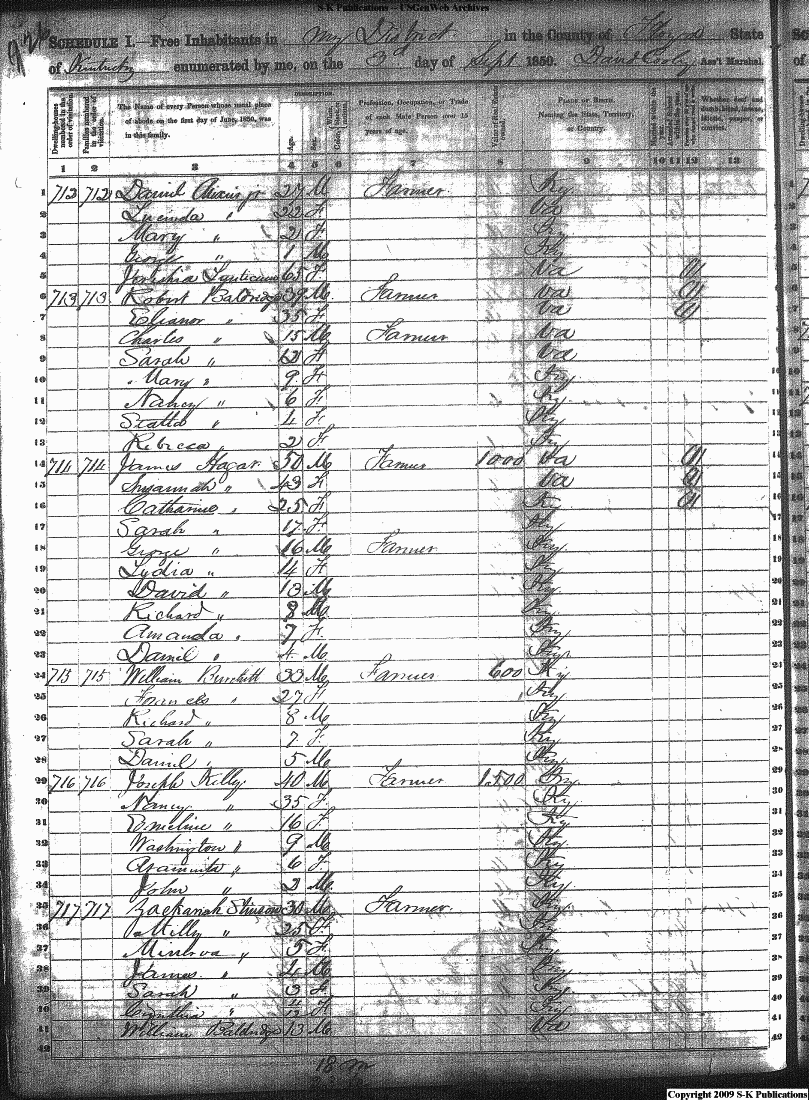 S-K Publications - USGenWeb Archives
SCHEDULE I.—Free Inhabitants in my District in the County of Floyd State
of Kentucky enumerated by me, on the 3 day of Sept 1850. David Cooley Ass't Marshal.
Dwelling-houses numbered in the order of visitation. Families numbered in the order of visitation. The Name of every Person whose usual place of abode on the first day of June, 1850, was in this family. DESCRIPTION. Age. Sex. Profession, Occupation, or Trade of each Male Person over 15 years of age. Value of Real Estate owned. PLACE OF BIRTH. Naming the State, Territory or Country. Whether deaf and dumb, blind, insane, idiotic, pauper, or convict.
1 2 3 4 5 6 7 8 9 10 11 12 13
1 712 712 Daniel jr 27 M Farmer Ky
2 Lucinda " 22 F Va
3 Mary " 2 F Ky
4 George " 1 M Ky
5 65 F Va 1
6 713 713 Robert Baldridge 39 M Farmer Va 1
7 Eleanor " 35 F Va 1
8 Charles " 15 M Farmer Va
9 Sarah " 12 F Va
10 Mary " 9 F Ky
11 Nancy " 6 F Ky
12 " 4 F Ky
13 Rebecca " 2 F Ky
14 714 714 James Hager 50 M Farmer 1000 Va 1
15 Susannah " 43 F Va 1
16 Catharine " 25 F Ky 1
17 Sarah " 17 F Ky
18 George " 16 M Farmer Ky
19 Lydia " 14 F Ky
20 David " 13 M Ky
21 Richard " 8 M Ky
22 Amanda " 7 F Ky
23 Daniel " 4 M Ky
24 715 715 William Burchett 33 M Farmer 600 Ky
25 Frances " 27 F Ky
26 Richard " 8 M Ky
27 Sarah " 7 F Ky
28 Daniel " 5 M Ky
29 716 716 Joseph Kelly 40 M Farmer 1500 Ky
30 Nancy " 35 F Ky
31 Emeline " 16 F Ky
32 Washington " 9 M Ky
33 Araminta " 6 F Ky
34 John " 2 M Ky
35 717 717 Zackariah Stinson 30 M Farmer Ky
36 Milly " 25 F Ky
37 Minerva " 5 F Ky
38 James " 4 M Ky
39 Sarah " 3 F Ky
40 Cynthia " F Ky
41 William Baldridge 13 M Va
42
18 m
Copyright 2009 S-K Publications